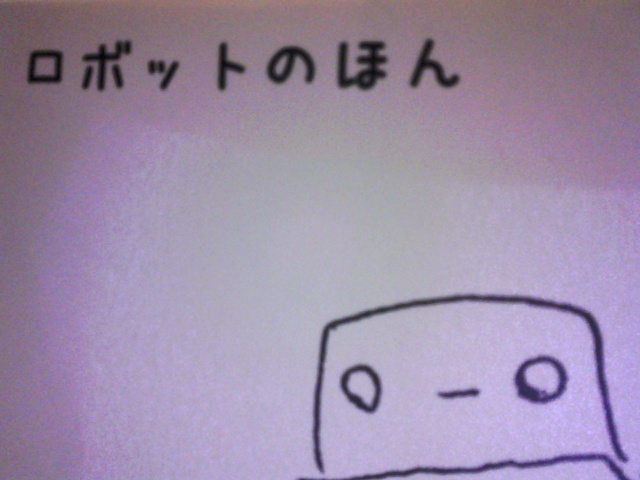 ロボットのほん